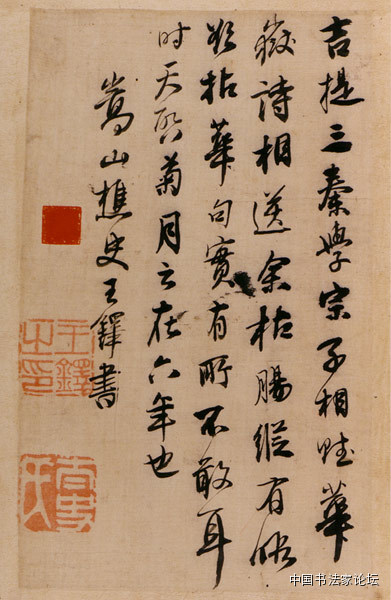 吉提三秦學宗子相賦華
嶽詩相送余枯腸縱有
拈華句實有所不敢耳
时天啓菊月云在六年也
嵩山樵史王鐸書
王鐸之印
中国书法家论坛